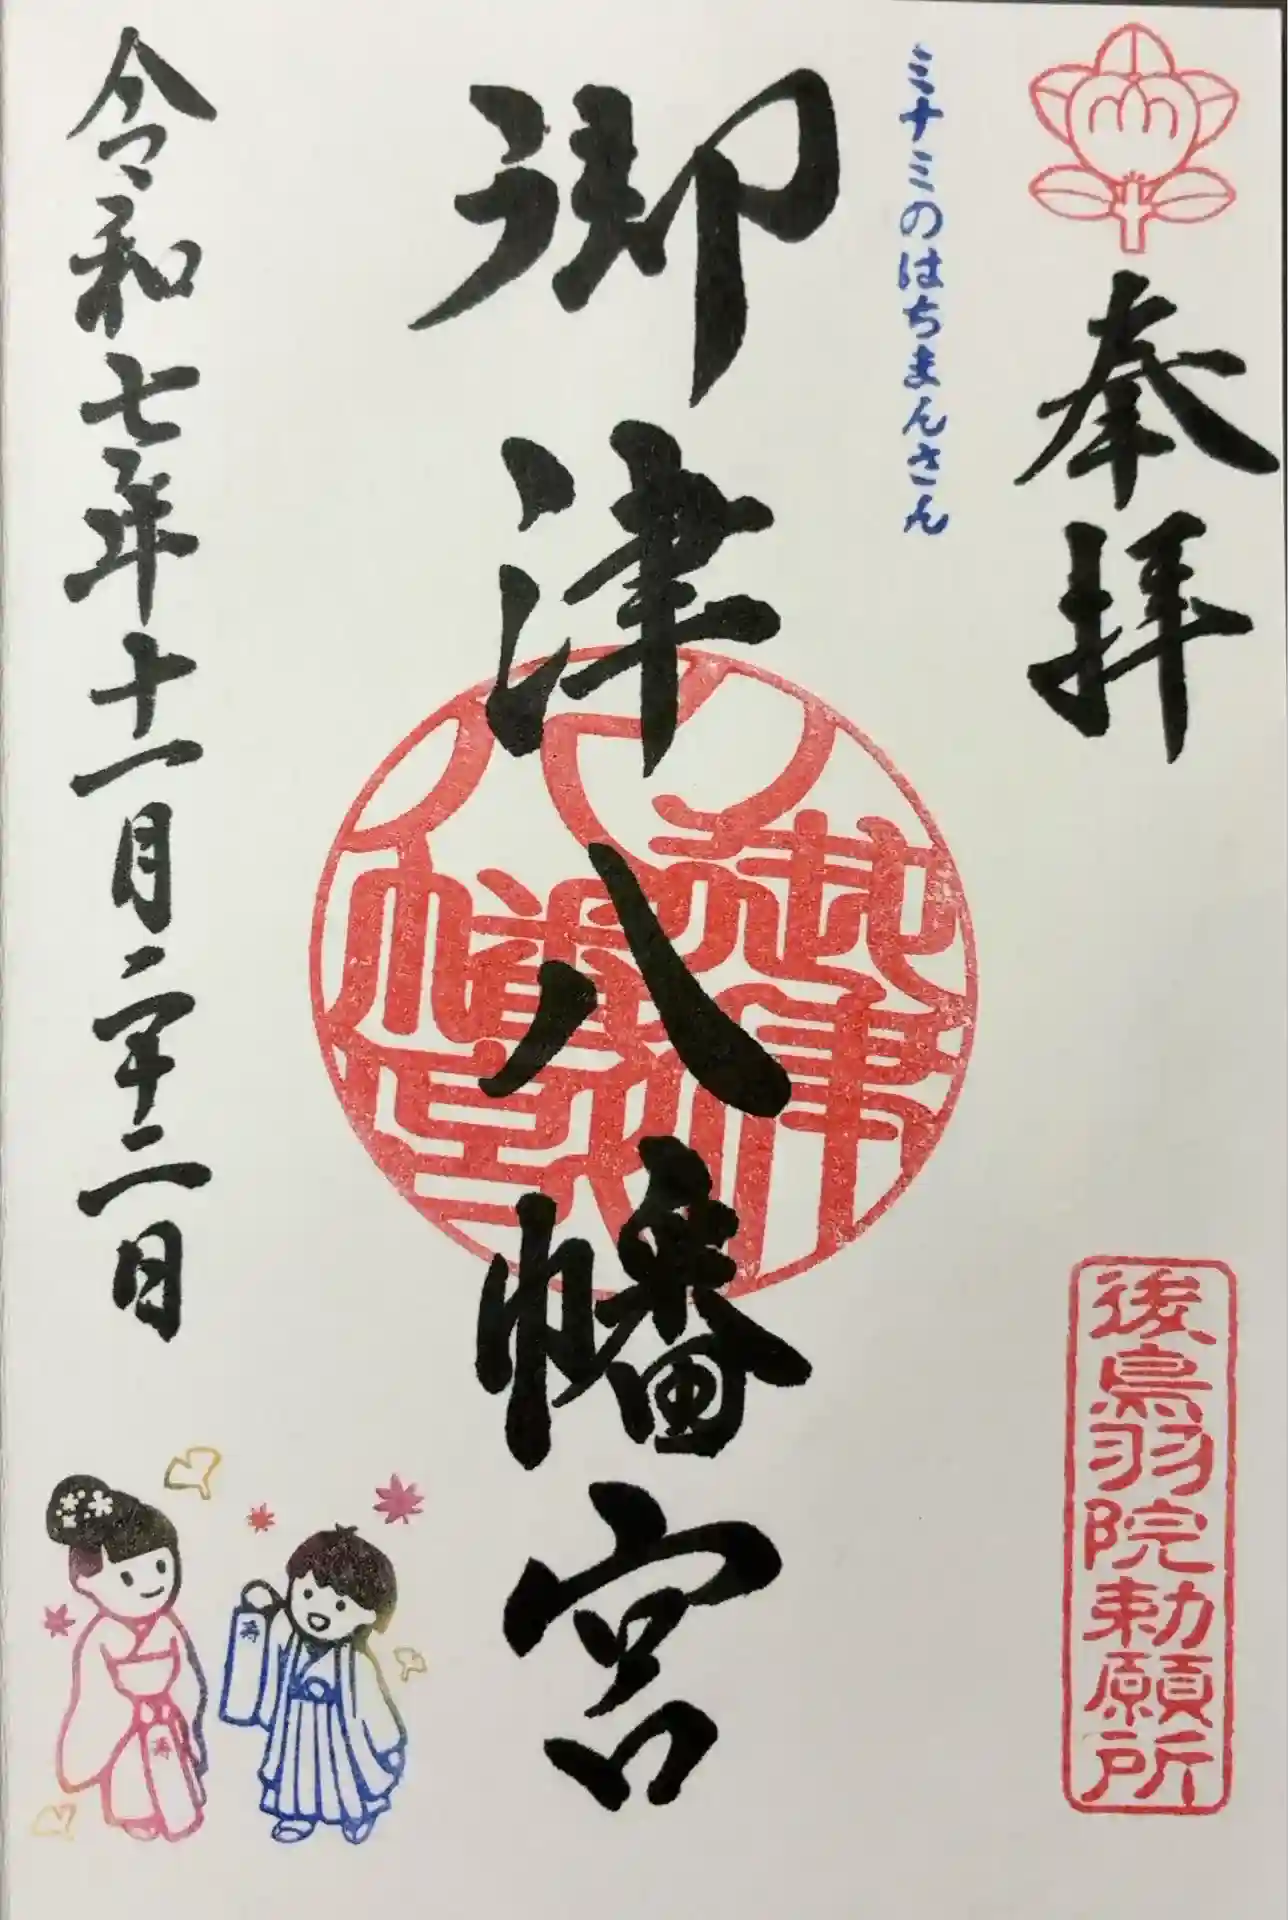 奉拝
後鳥羽院勅願所
ミナミのはちまんさん
御津八幡宮
御津八幡宮
令和七年十一月二十二日
寿
寿